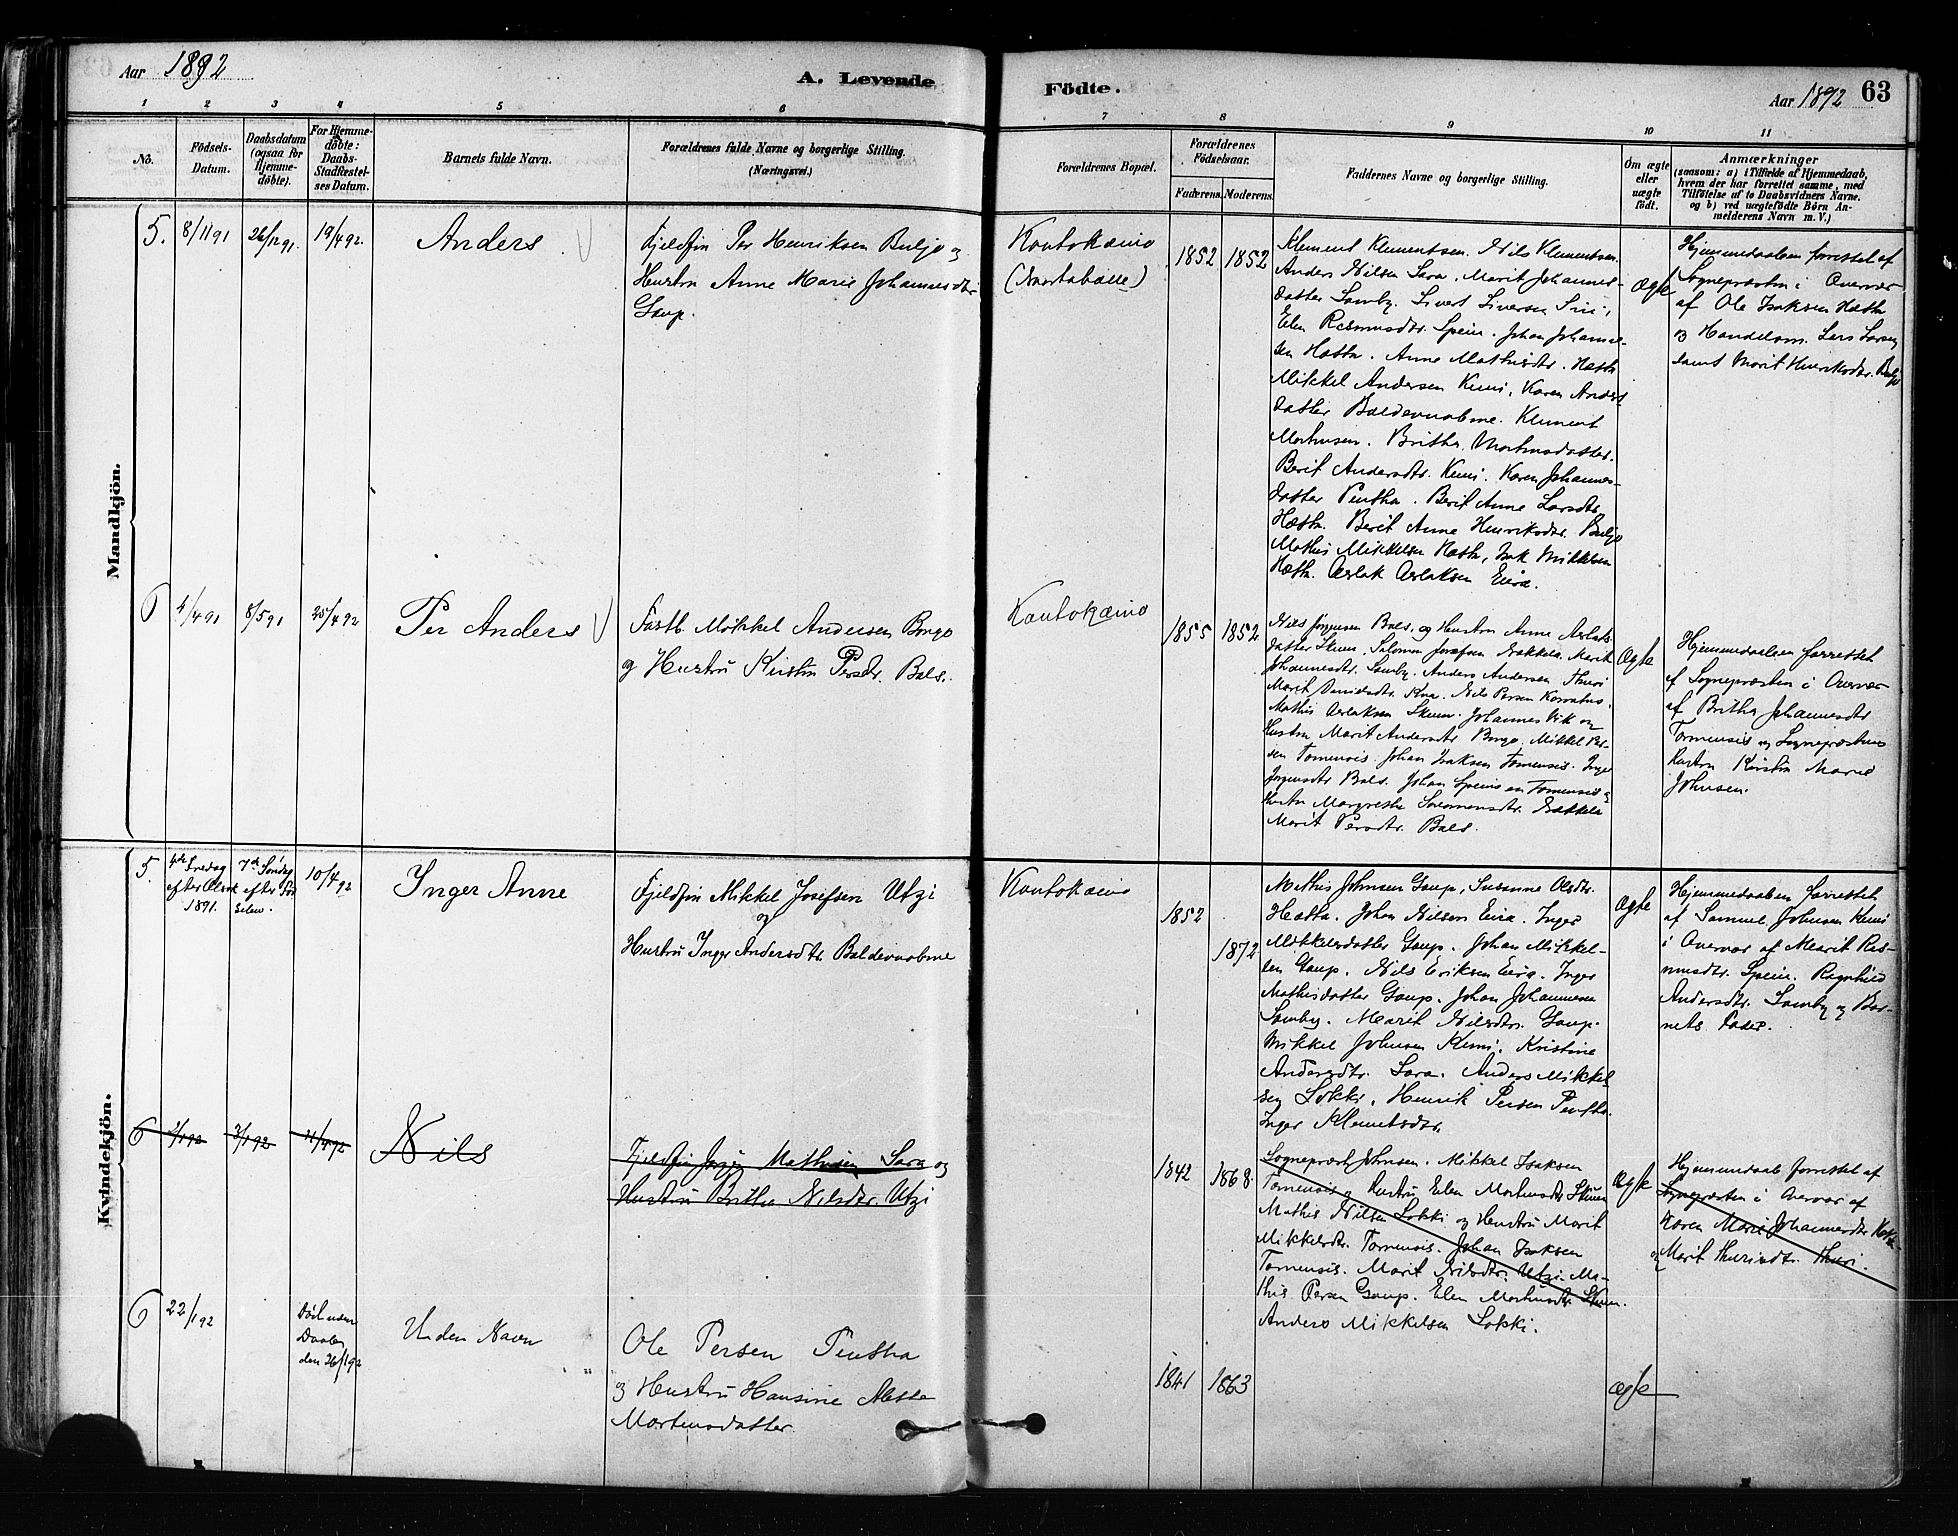 Aar 1892
A. Levende
Födte.
Aar 1892
63
1 2 3 4 5 6 7 8 9 10 11
No.
Födsels-
Datum.
Daabsdatum
(ogsaa for
Hjemme-
döbte).
For Hjemme-
döbte:
Daabs-
Stadfæstel-
ses Datum.
Barnets fulde Navn.
Forældrenes fulde Navne og borgerlige Stilling.
(Næringsvei.)
Forældrenes Bopæl.
Forældrenes
Födselsaar.
Faderens. Moderens.
Faddernes Navne og borgerlige Stilling.
Om ægte
eller
uægte
födt.
Anmærkninger
(saasom: a) i Tilfælde af Hjemmedaab,
hvem der har forrettet samme, med
Tilföielse af to Daabsvidners Navne.
og b) ved uægtefödte Börn An-
melderens Navn m. V.)
Mandkjön.
5. 8/11 91 26/12 91. 19/4 92. Anders
Fjeldfin Per Henriksen Buljo og
Hustru Anne Marie Johannesdtr
Gaup.
Koutokæino
1852 1852
Klement Klementsen. Nils Klementsen.
Anders Nilsen Sara. Marit Johannes-
datter Somby. Sivert Siversen Siri,
Elen Rasmusdtr. Spein. Johan Johannes-
sen Hætta. Anne Mathisdtr. Hætta
Mikkel Andersen Kemi, Karen Anders
datter Baldevuobme. Klement
Mortensen. Britha Mortensdatter.
Berit Andersdtr. Kemi. Karen Johannes-
datter Pentha. Berit Anne Larsdtr.
Hætta. Berit Anne Henriksdtr. Buljo
Mathis Mikkelsen Hætta, Isak Mikkelsen
Hætta. Aslak Aslaksen Eira.
ægte
Hjemmedaaben forrettet af
Sognepræsten i Overvær
af Ole Isaksen Hætta
og Handelsm. Lars Larsen
samt Marit Henriksdtr. Buljo
6 4/4 91 8/5 91 25/4 92 Per Anders
Fastb. Mikkel Andersen Bongo
og Hustru Kirstin Persdr. Bals.
Koutokæino
1855 1852
Nils Jörgensen Bals. og Hustru Anne Aslaks
datter Skum. Salomon Josefsen Gakkela. Marit
Johannesdtr. Somby. Anders Andersen Thuri
Mathis Aslaksen Skum. Johannes Vik og
Hustru Marit Andersdtr Bongo. Mikkel Per-
sen Tornensis. Johan Isaksen Tornensis. Inger
Jörgensdtr Bals. Johan Speinsen Tornensis og
Hustru Margrethe Salomonsdtr. Gakkela
Marit Persdtr. Bals.
Ægte
Hjemmedaaben forrettet
af Sognepræsten i Overvær
af Britha Johannesdtr
Tornensis og Sognepræstens
Hustru Kirstin Marie
Johnsen.
Kvindekjön.
5. 4de Fredag
efter Olsok
1891.
7de Söndag
efter
10/4 92
Inger Anne
Fjeldfin Mikkel Josefsen Utzi
og
Hustru Inger Andersdtr. Baldevuobme
Koutokæino
1852
1872
Mathis Johnsen Gaup, Susanne Olsdtr.
Hætta. Johan Nilsen Eira. Inger
Mikkelsdatter Gaup. Johan Mikkel-
sen Gaup. Nils Eriksen Eira. Inger
Mathisdatter Gaup. Johan Johannesen
Somby. Marit Nilsdtr. Gaup.
Mikkel Johnsen Kemi. Kristine
Andersdtr. Sara. Anders Mikkel-
sen Lokki, Henrik Persen Pentha.
Inger Klemetsdtr.
Ægte
Hjemmedaaben forrettet
af Samuel Johnsen Kemi
i Overvær af Marit Ras-
musdtr. Spein. Ragnhild
Andersdtr. Somby og Bar-
nets Fader.
6 2/1 92 3/1 92 11/4 92 Nils
Fjeldfin Mathisen Sara og
Hustru Britha Nilsdtr. Utzi
1842 1868.
Sognepræst Johnsen. Mikkel Isaksen
Tornensis og Hustru Elen Mortensdtr Skum
Mathis Nilsen Lokki og Hustru Marit
Mikkelsdtr. Tornensis. Johan Isaksen
Tornensis. Marit Nilsdtr. Utzi. Ma-
this Persen Gaup. Elen Mortensdtr Skum.
Anders Mikkelsen Lokki.
Ægte
Hjemmedaab forrettet af
Sognepræsten i Overvær af
Karen Marie Johannesdtr
og Marit Thurisdtr. Thuri.
6 22/1 92
Död uden
Daaben
den 26/1 92
Uden Navn
Ole Persen Pentha
og Hustru Hansine Mette
Mortensdatter
1841 1863
ægte